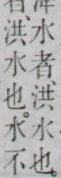 洚水者洪水也。
洪水也。水不